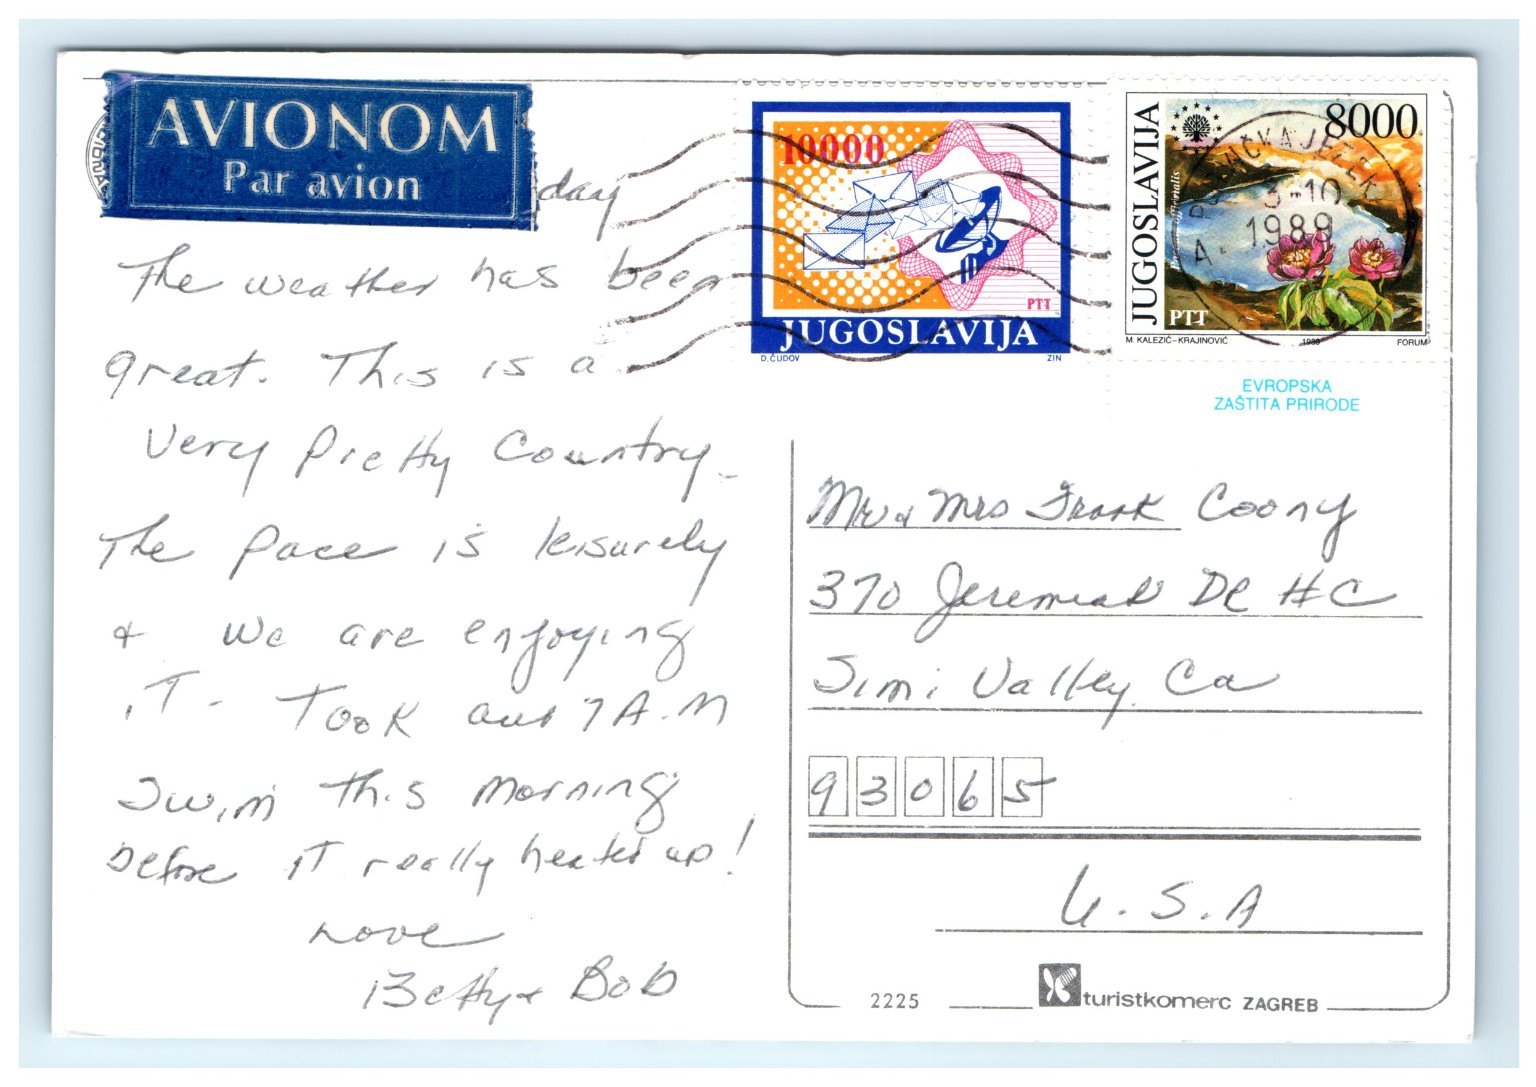 AVIONOM
Par avion
day
The weather has been
great. This is a
very pretty country -
The pace is leisurely
+ we are enjoying
iT - Took our 7 A.M
swim this morning
before iT really heated up!
Love
Betty + Bob
10000
PTT
JUGOSLAVIJA
D. ČUDOV ZIN
JUGOSLAVIJA
8000
PTT
3-10
1989
M. KALEZIĆ-KRAJINOVIĆ 1989 FORUM
EVROPSKA
ZAŠTITA PRIRODE
Mr & Mrs Frank Coony
370 Jeremiah DR #C
Simi Valley, Ca
93065
U.S.A
2225
turistkomerc ZAGREB